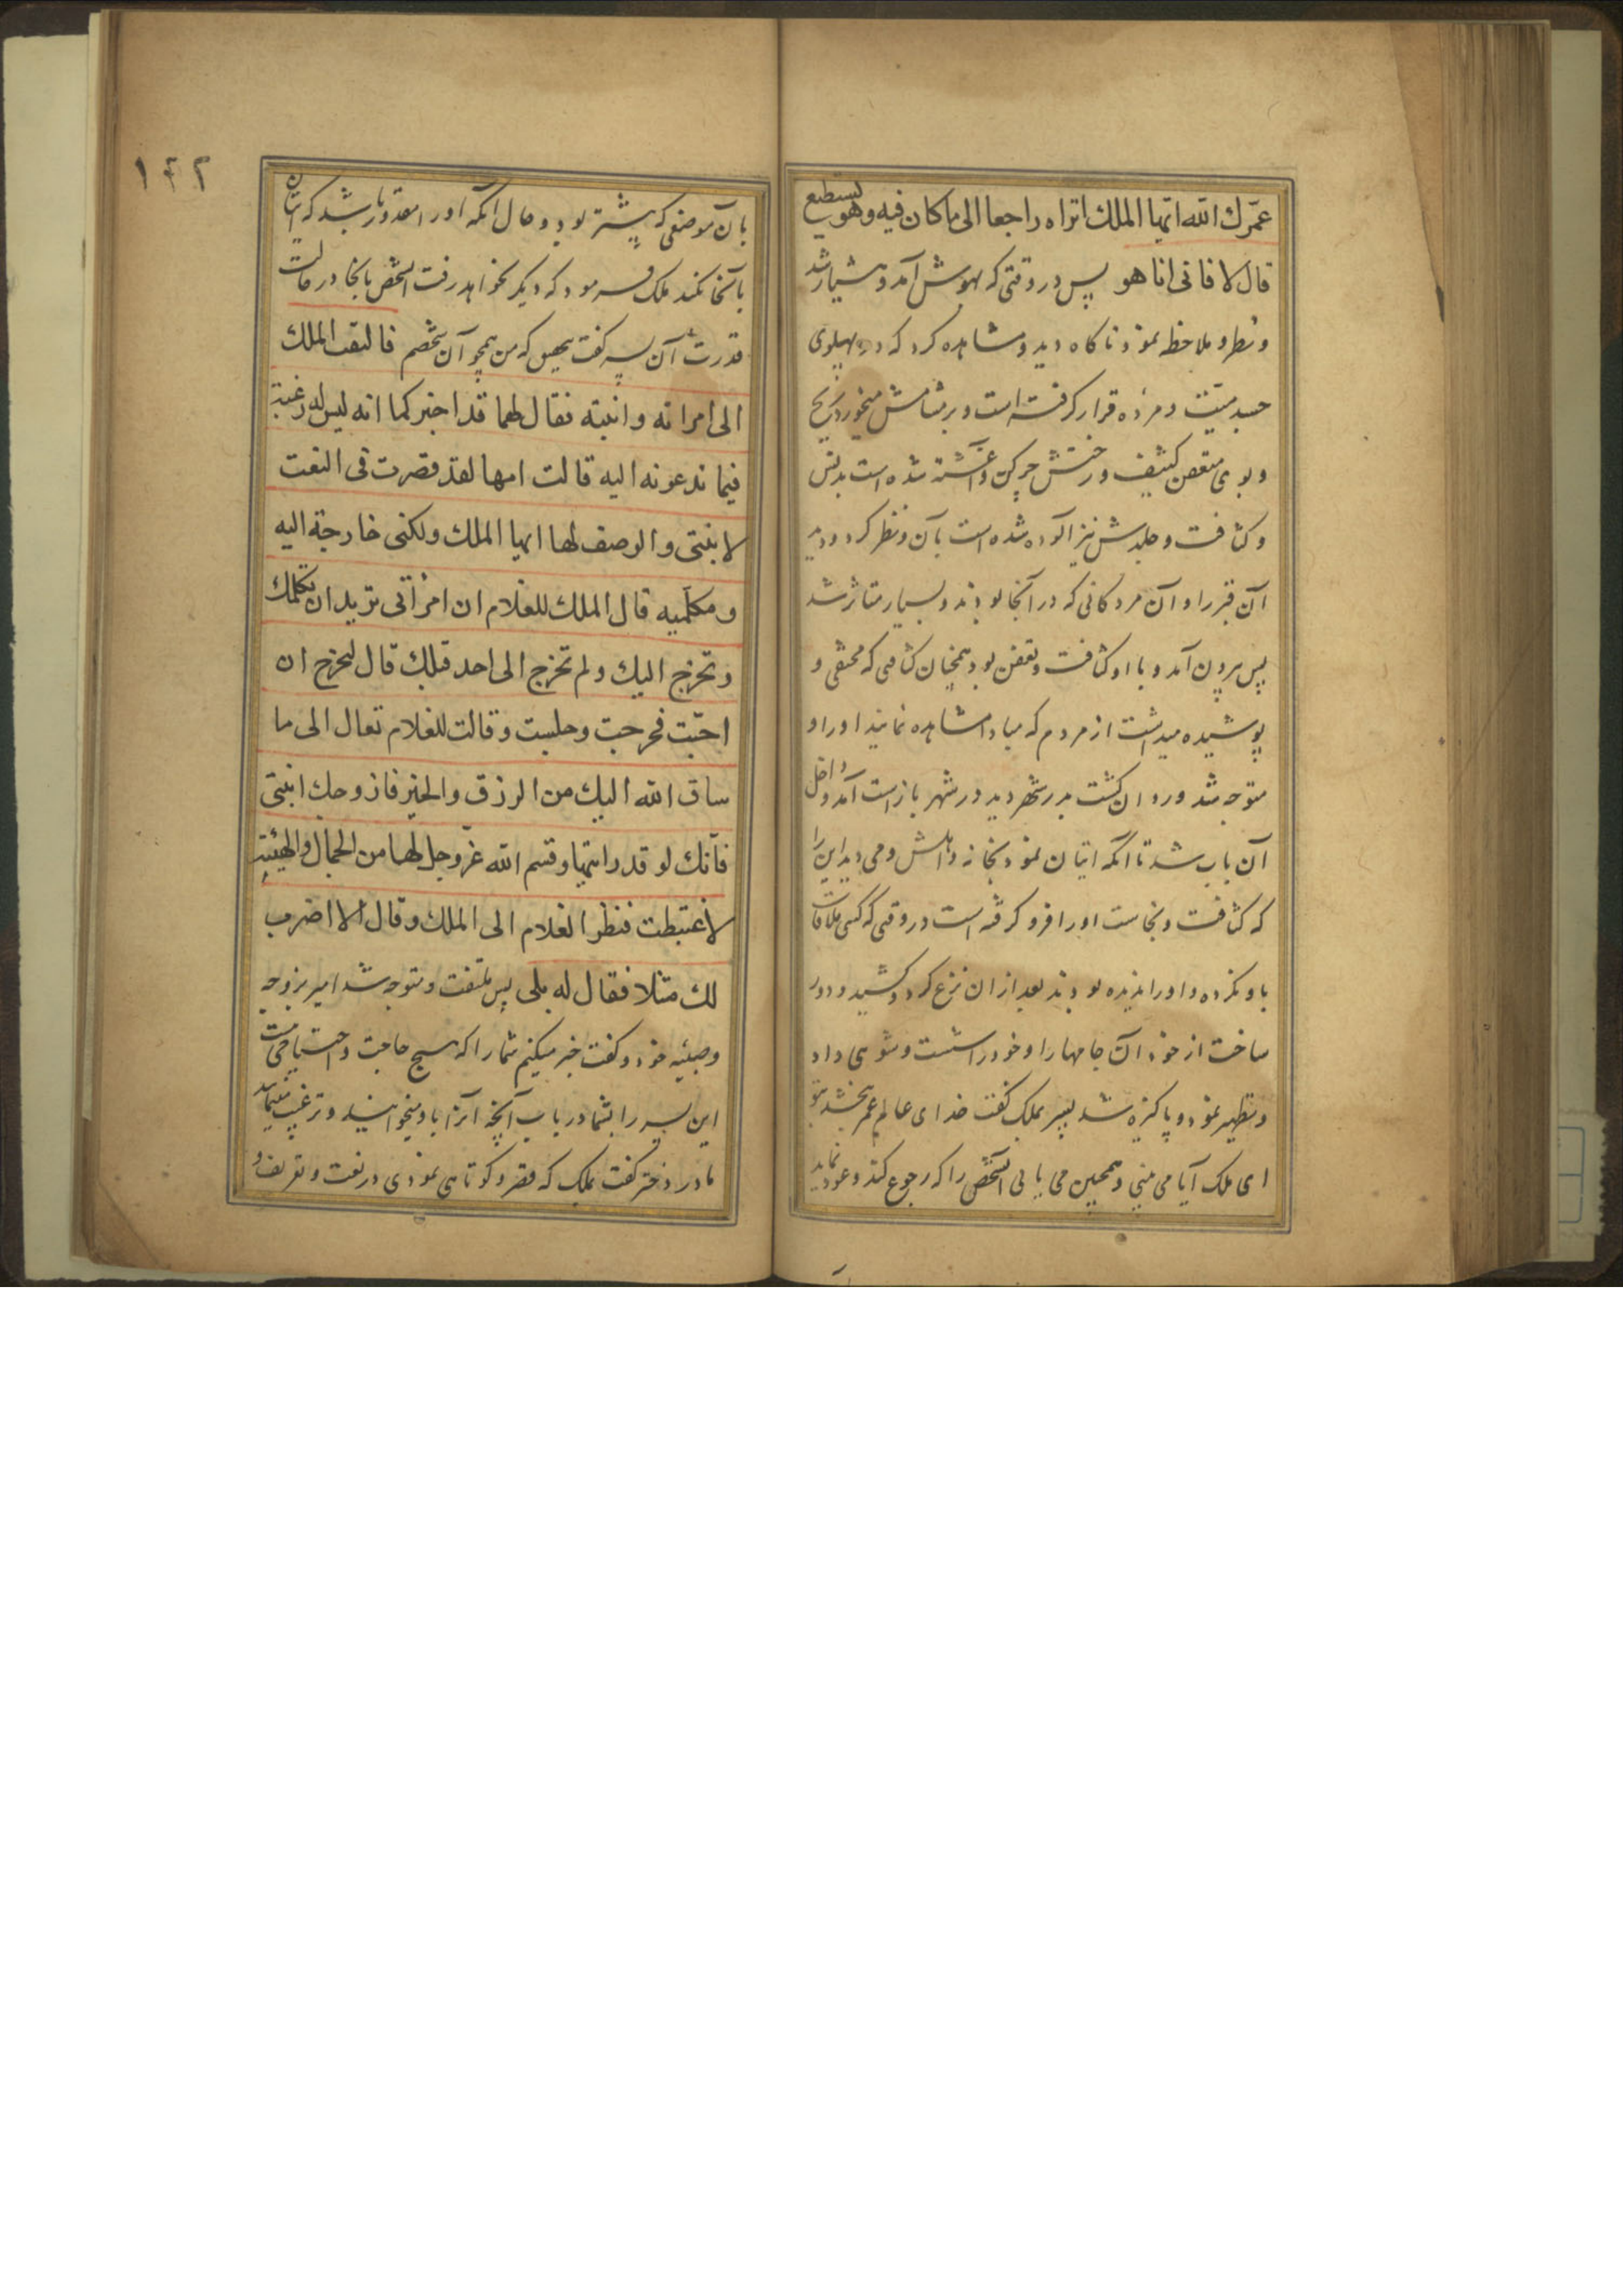 عمّرك الله ايّها الملك اتراه راجعا الى ما كان فيه وهو يستطيع
قال لا فانى انا هو پس در وقتى كه بهوش آمد و هشيار شد
و نظر و ملاحظه نمود ناكاه ديد و مشاهده كرد كه در پهلوى
جسد ميّت و مرده قرار كرفته است و بر مشامش ميخورد ريح
و بوى متعفن كثيف و رختش چركين و آغشته شده است بدنس
و كثافت و جلدش نيز آلوده شده است بآن و نظر كرد و ديد
آن قبر را و آن مردكانى كه در آنجا بودند و بسيار متاثر شد
پس بيرون آمد و با او كثافت و تعفن بود همچنان كثافتى كه مخفى و
پوشيده ميداشت از مردم كه مبادا مشاهده نمايند او را و
متوجه شد و روان كشت بدر شهر ديد در شهر باز است آمد و داخل
آن باب شد تا انكه اتيان نمود بخانه و اهلش و مى ديد اين را
كه كثافت و نجاست او را فرو كرفته است در وقتى كه كسى ملاقات
باو نكرده و او را نديده بودند بعد از ان نزع كرد و كشيد و دور
ساخت از خود آن جامها را و خود را شست و شوى داد
و تطهير نمود و پاكيزه شد پسر بملك كفت خداى عالم عمر بخشد بتو
اى ملك آيا مى بينى و همچنين مى يابى آنشخص را كه رجوع كند و عود نمايد
١٢٢
بآن موضعى كه پيشتر بود و حال آنكه او را مقدور باشد كه اتيان
بآنجا نكند ملك فرمود كه ديكر نخواهد رفت آنشخص بانجا در حالت
قدرت آن پسر كفت بحق كه من همچو آن شخصم فالتفت الملك
الى امراته و ابنته فقال لهما قد اخبركما انه ليس له رغبة
فيما تدعونه اليه قالت امها لقد قصرت فى النعت
لابنتى والوصف لها ايها الملك ولكنى خارجة اليه
و مكلّميه قال الملك للغلام ان امراتى تريد ان تكلمك
و تخرج اليك و لم تخرج الى احد قبلك قال لتخرج ان
احبّت فخرجت و جلست و قالت للغلام تعال الى ما
ساق الله اليك من الرزق والخير فازوجك ابنتى
فانّك لو قد رايتها و قسم الله عزّ وجل لها من الجمال والهيئة
لاغتبطت فنظر الغلام الى الملك و قال الا اضرب
لك مثلا فقال له بلى پس ملتفت و متوجه شد امير بزوجه
و صبيّه خود و كفت خبر ميكنم شما را كه هيچ حاجت و احتياجى نيست
اين پسر را بشما در باب آنچه آنرا باو ميخوانيد و ترغيب مينمائيد
مادر دختر كفت بملك كه قصر و كوتاهى نمودى در نعت و تعريف و